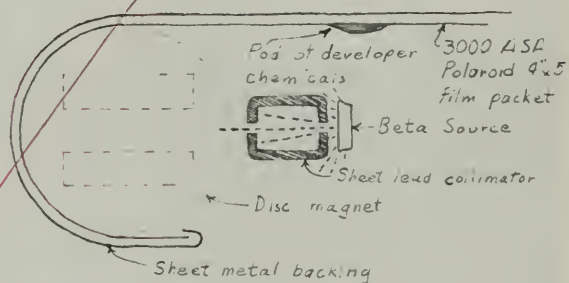 Pod of developer
chemicals
3000 ASA
Polaroid 4"x5"
film packet
Beta Source
Sheet lead collimator
Disc magnet
Sheet metal backing